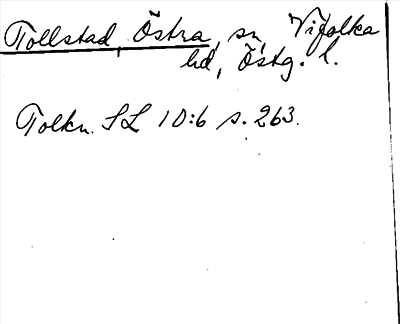 Tollstad, Östra, sn, Vifolka
hd, Östg. l.
Tolkn. SL 10:6 s. 263.